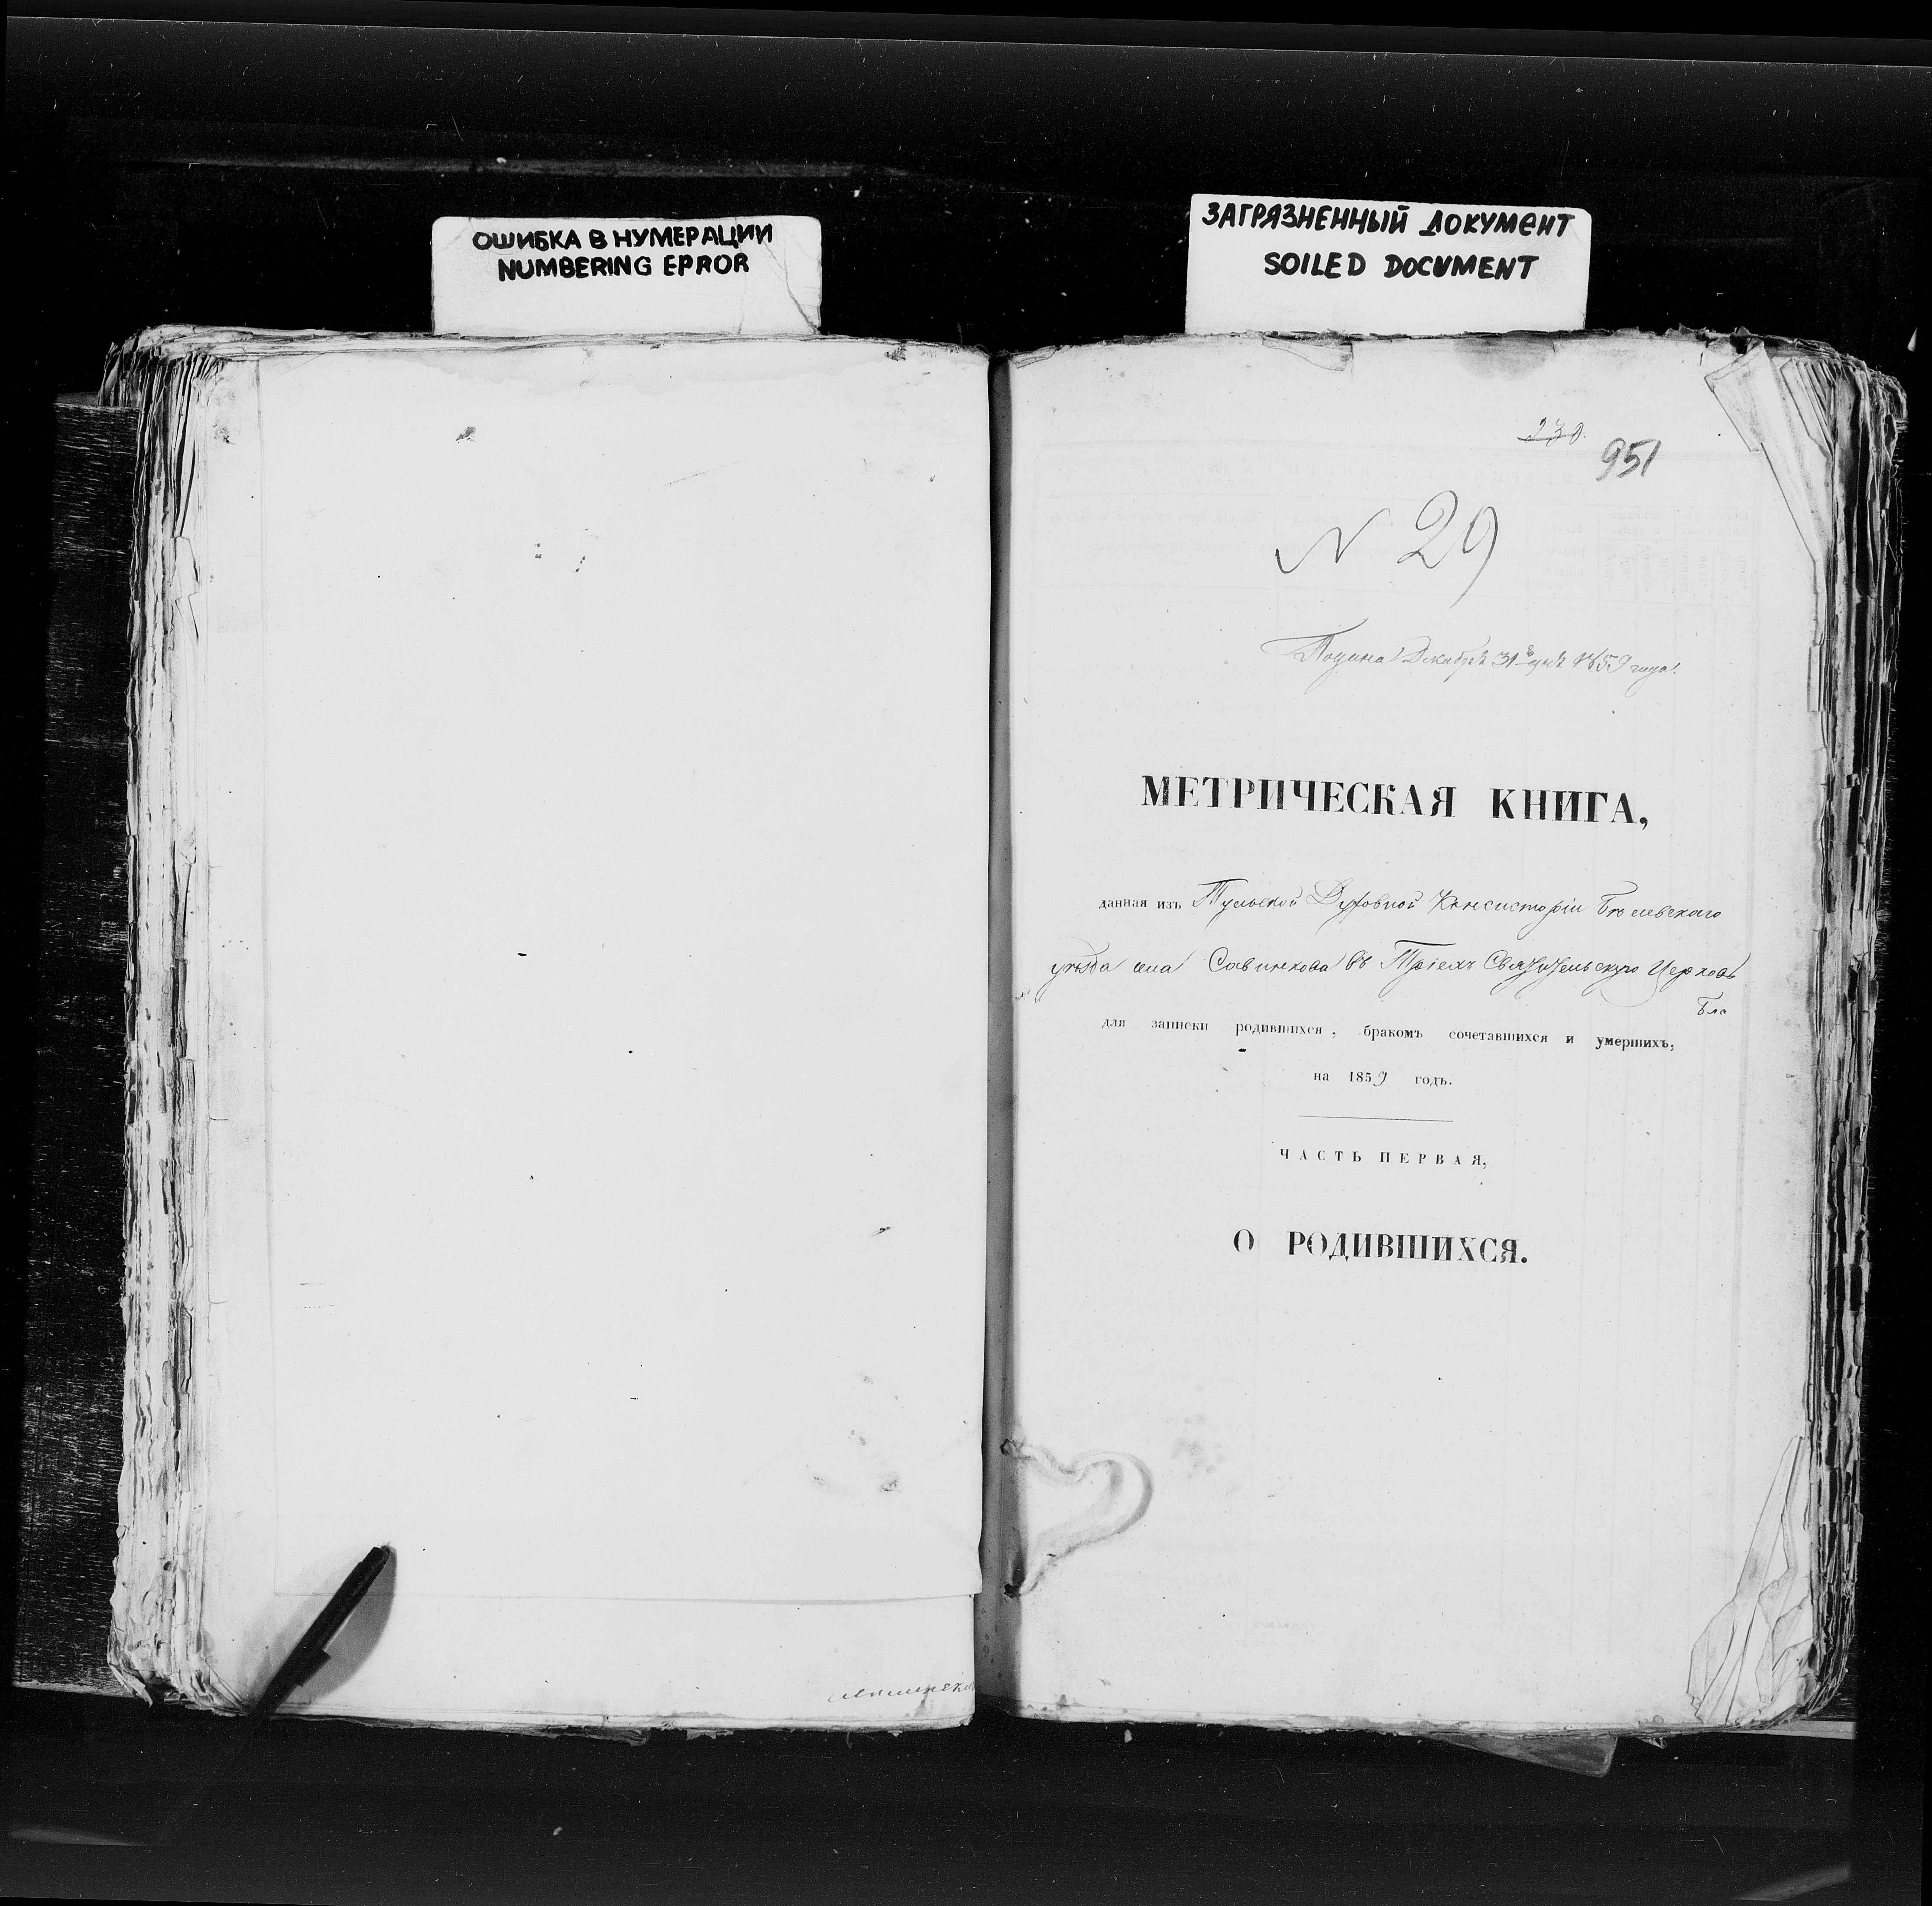 ОШИБКА В НУМЕРАЦИИ
NUMBERING ERROR
ЗАГРЯЗНЕННЫЙ ДОКУМЕНТ
SOILED DOCUMENT
230.
951
N 29
Декабря 31 дня 1859 года.
МЕТРИЧЕСКАЯ КНИГА,
данная изъ Тульской Духовной Консисторіи Бѣлевскаго
уѣзда села Савинкова въ Святительскую Церковь
для записки родившихся, бракомъ сочетавшихся и умершихъ,
на 1859 годъ.
ЧАСТЬ ПЕРВАЯ,
О РОДИВШИХСЯ.